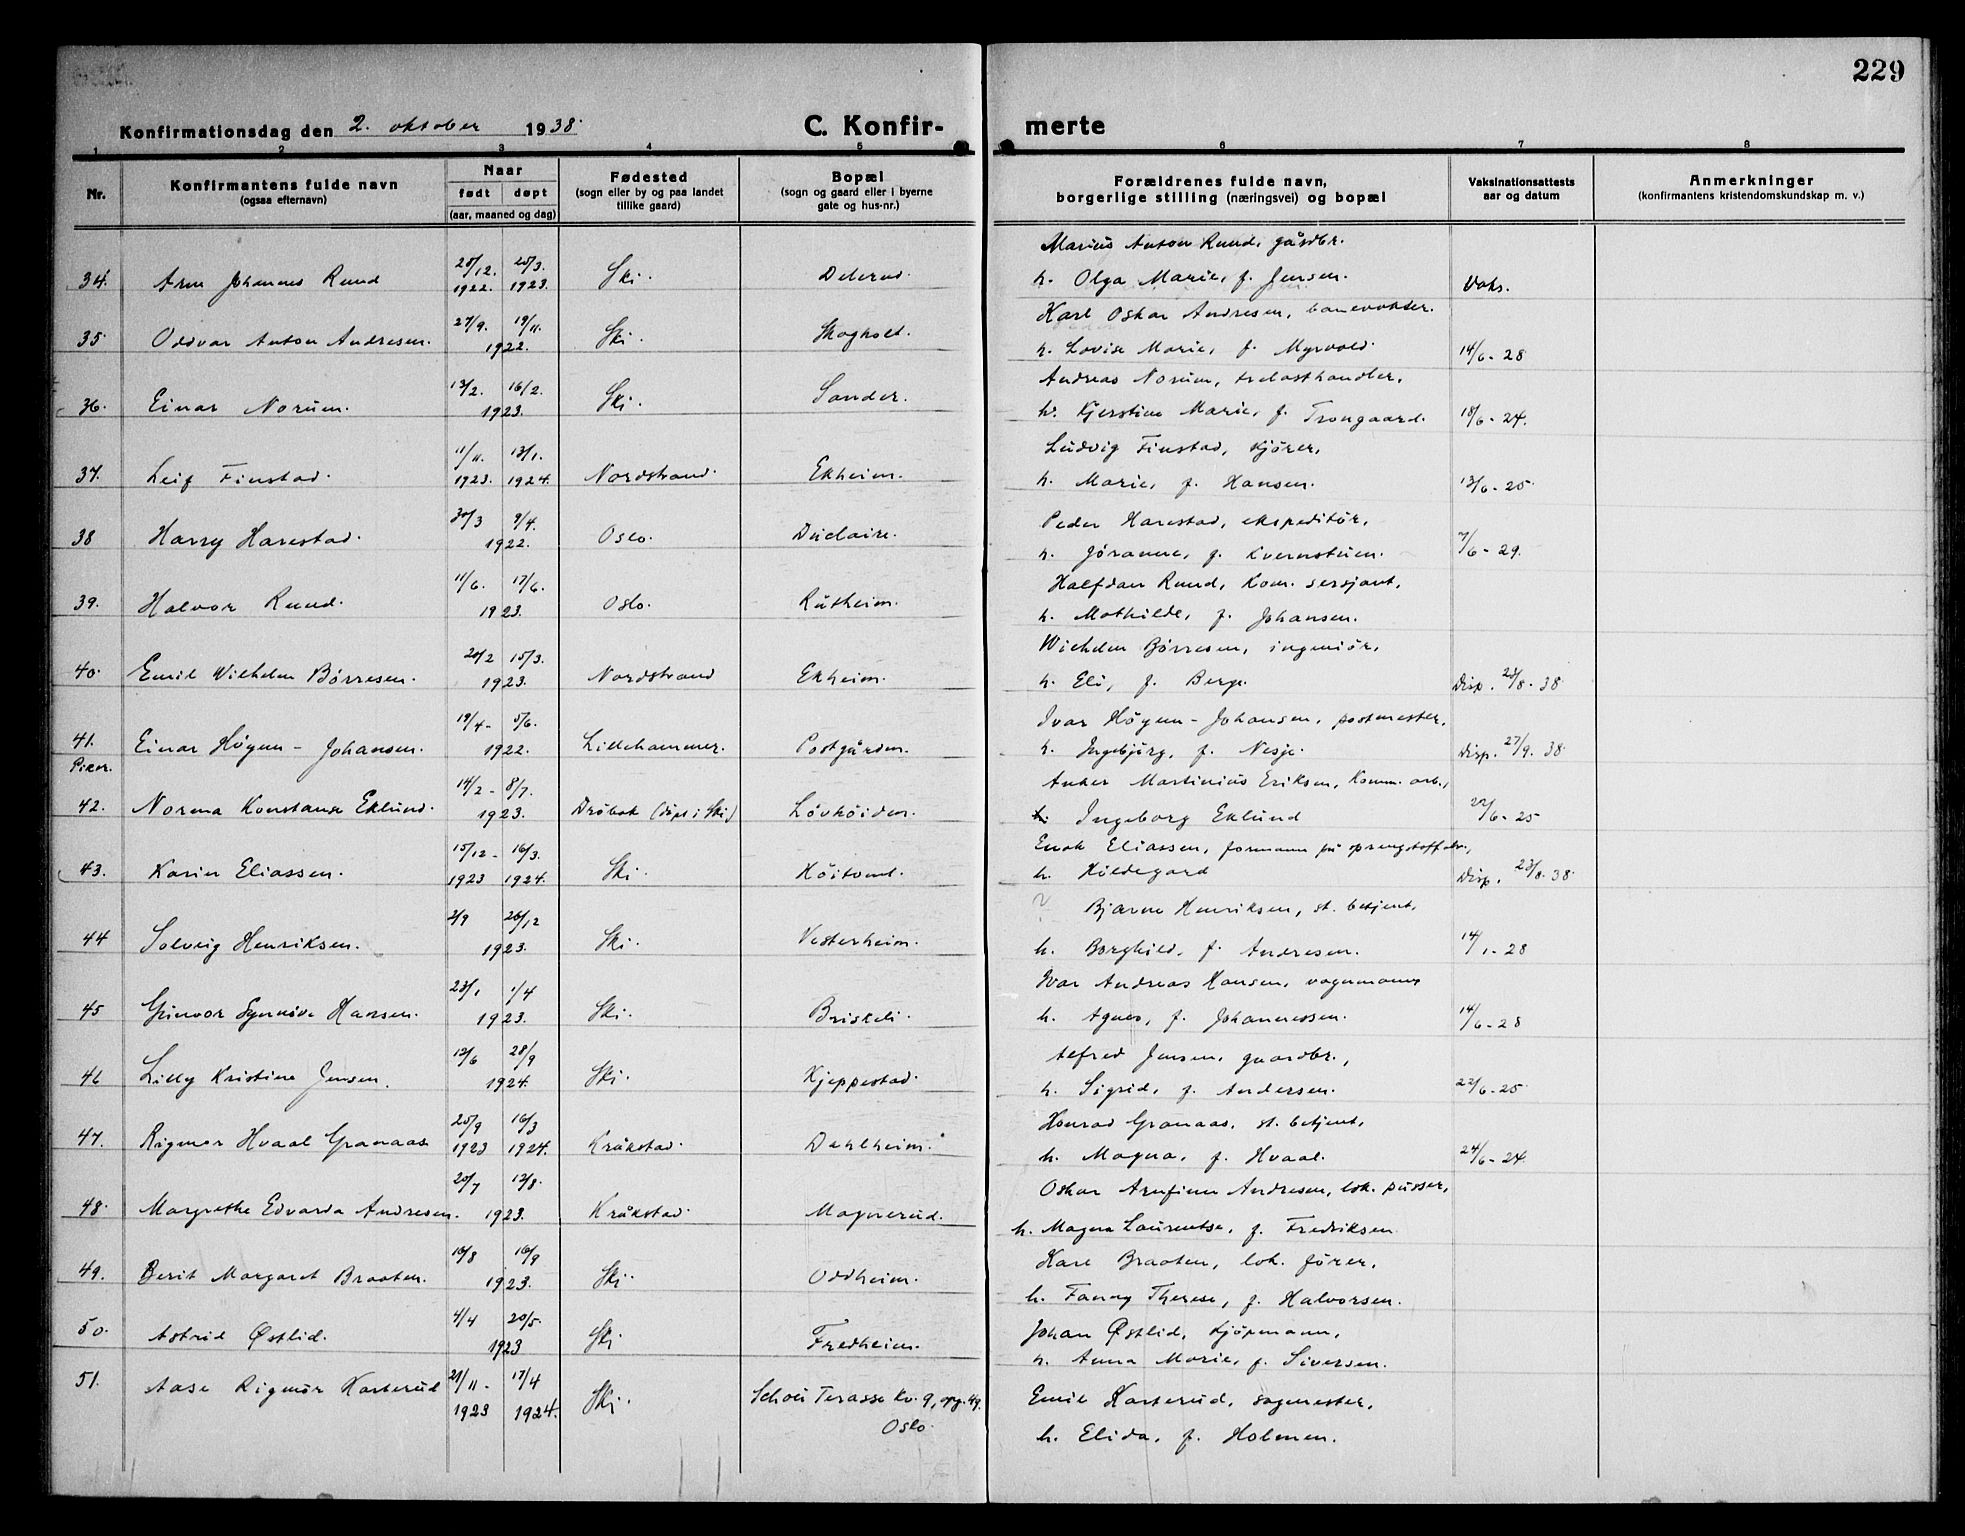 229
Konfirmationsdag den 2. oktober 1938.
C. Konfir-merte
1 2 3 4 5 6 7 8
Nr.
Konfirmantens fulde navn
(ogsaa efternavn)
Naar
født døpt
(aar, maaned og dag)
Fødested
(sogn eller by og paa landet
tillike gaard)
Bopæl
(sogn og gaard eller i byerne
gate og hus-nr.)
Forældrenes fulde navn,
borgerlige stilling (næringsvei) og bopæl
Vaksinationsattests
aar og datum
Anmerkninger
(konfirmantens kristendomskundskap m. v.)
Marius Anton Ruud, gårdbr.
34. Arne Johannes Ruud 20/12. 1922. 20/3. 1923. Ski. Delerud. h. Olga Marie, f. Jensen. Vaks.
Karl Oskar Andresen, banevokter.
35. Oddvar Anton Andresen. 27/9. 19/11. 1922. Ski. Skogholt. h. Lovise Marie, f. Myrvold. 14/6 - 28
Andreas Norum, trelasthandler,
36. Einar Norum. 13/2. 16/2. 1923. Ski. Sander. h. Kjerstine Marie, f. Trongaard. 18/6 - 24.
Ludvig Finstad, kjører,
37. Leif Finstad. 11/11. 1923. 13/1. 1924. Nordstrand. Ekheim. h. Marie, f. Hansen. 13/6 - 25
Peder Harestad, ekspeditør,
38 Harry Harestad. 30/3 9/4. 1922. Oslo. Duclaire. h. Jøranne, f. Kvernstuen. 7/6 - 29.
Halfdan Ruud, kom. sersjant,
39. Halvor Ruud. 11/6. 17/6. 1923. Oslo. Rutheim. h. Mathilde, f. Johansen.
Wilhelm Børresen, ingeniør,
40. Emil Wilhelm Børresen. 20/2 15/3. 1923. Nordstrand Ekheim. h. Eli, f. Berge. Disp. 23/8. 38
Ivar Høgum - Johansen, postmester,
41. Einar Høgum - Johansen. 19/4 - 5/6. 1922. Lillehammer. Postgården. h. Ingebjørg, f. Nesje. Disp. 27/9. 38
Piker.
Anker Martinius Eriksen, Komm. arb.,
42. Norma Konstanse Eklund. 14/2 - 8/7. 1923. Drøbak (døpt i Ski) Løvhøiden. h. Ingeborg Eklund 22/6 - 25
Enok Eliassen, formann på sprengstoffabr.,
43. Karin Eliassen. 15/12 - 1923 16/3. 1924. Ski. Høitomt. h. Hildegard Disp. 23/8. 38
? Bjarne Henriksen, st. betjent,
44 Solveig Henriksen. 2/9 26/12 1923. Ski. Vesterheim. h. Borghild, f. Andresen. 14/1 - 28
Ivar Andreas Hansen, vognmann
45 Gunvor Synnøve Hansen. 23/1 1/4 1923. Ski. Briskeli. h. Agnes, f. Johannessen. 14/6 - 28
Alfred Jensen, gaardbr.,
46 Lilly Kristine Jensen. 12/6 28/9 1924. Ski. Kjeppestad. h. Sigrid, f. Andersen. 22/6 - 25
Konrad Granaas, st. betjent,
47. Rigmor Hvaal Granaas 25/9 1923 16/3 1924. Kråkstad. Dahlheim. h. Magna, f. Hvaal. 24/6 - 24
Oskar Arnfinn Andresen, lok. pusser,
48. Margrethe Edvarda Andresen. 20/7 12/8. 1923. Kråkstad. Magnerud. h. Magna Lauentse, f. Fredriksen
Karl Braaten, lok. fører,
49. Berit Margaret Braaten. 16/8 16/9 1923. Ski. Oddheim. h. Fanny Therese, f. Halvorsen.
Johan Østlid, kjøpmann,
50. Astrid Østlid. 4/4 20/5. 1923 Ski Fredheim. h. Anna Marie, f. Siversen.
51. Aase Rigmor Karterud 21/11 - 1923 17/4 1924. Ski. Schou Terasse kv. 9, opg. 49. Oslo. Emil Karterud, sagmester,
h. Elida, f. Holmen.